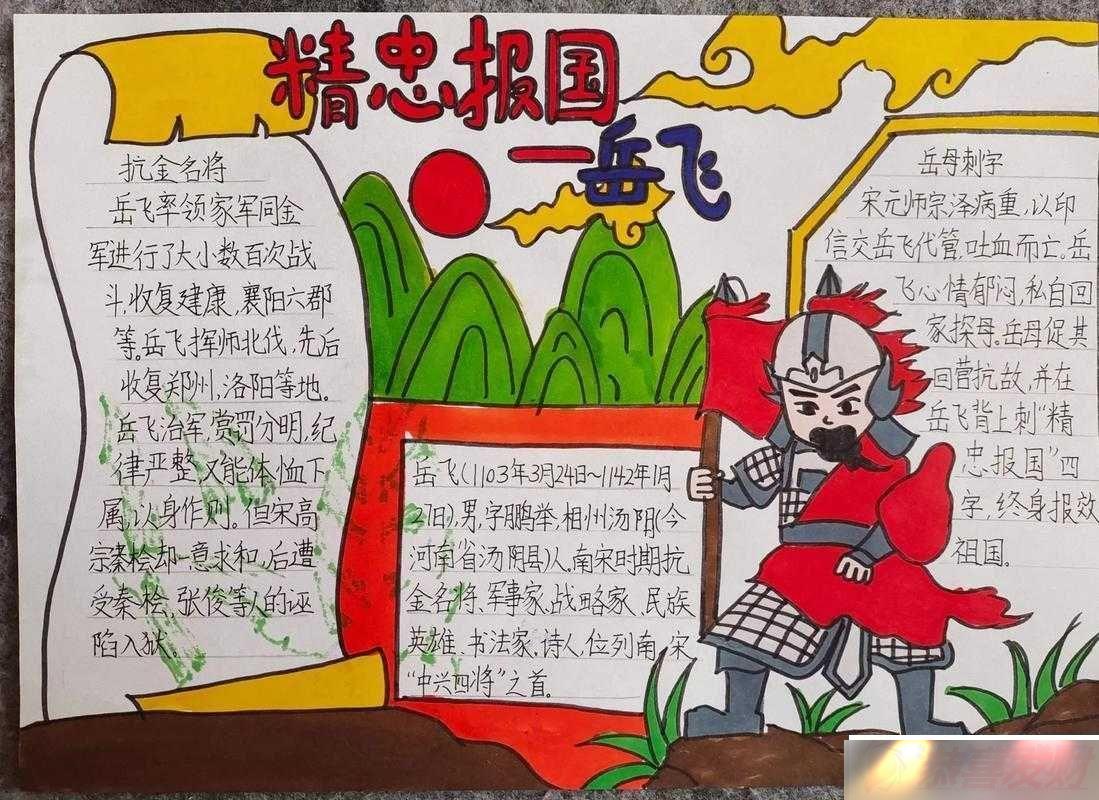 精忠报国
一岳飞
抗金名将
岳飞率领家军同金
军进行了大小数百次战
斗,收复建康,襄阳六郡
等。岳飞挥师北伐,先后
收复郑州,洛阳等地。
岳飞治军,赏罚分明,纪
律严整,又能体恤下
属,以身作则。但宋高
宗秦桧却一意求和,后遭
受秦桧,张俊等人的诬
陷入狱。
岳飞(1103年3月24日~1142年1月
27日),男,字鹏举,相州汤阴(今
河南省汤阴县)人。南宋时期抗
金名将、军事家、战略家、民族
英雄、书法家、诗人,位列南宋
“中兴四将”之首。
岳母刺字
宋元帅宗泽病重,以印
信交岳飞代管,吐血而亡。岳
飞心情郁闷,私自回
家探母。岳母促其
回营抗敌,并在
岳飞背上刺“精
忠报国”四
字,终身报效
祖国。